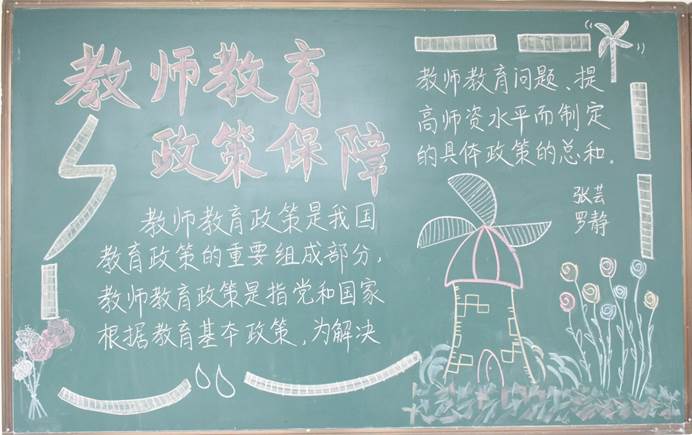 教师教育
政策保障
教师教育政策是我国
教育政策的重要组成部分,
教师教育政策是指党和国家
根据教育基本政策,为解决
教师教育问题、提
高师资水平而制定
的具体政策的总和.
张芸
罗静